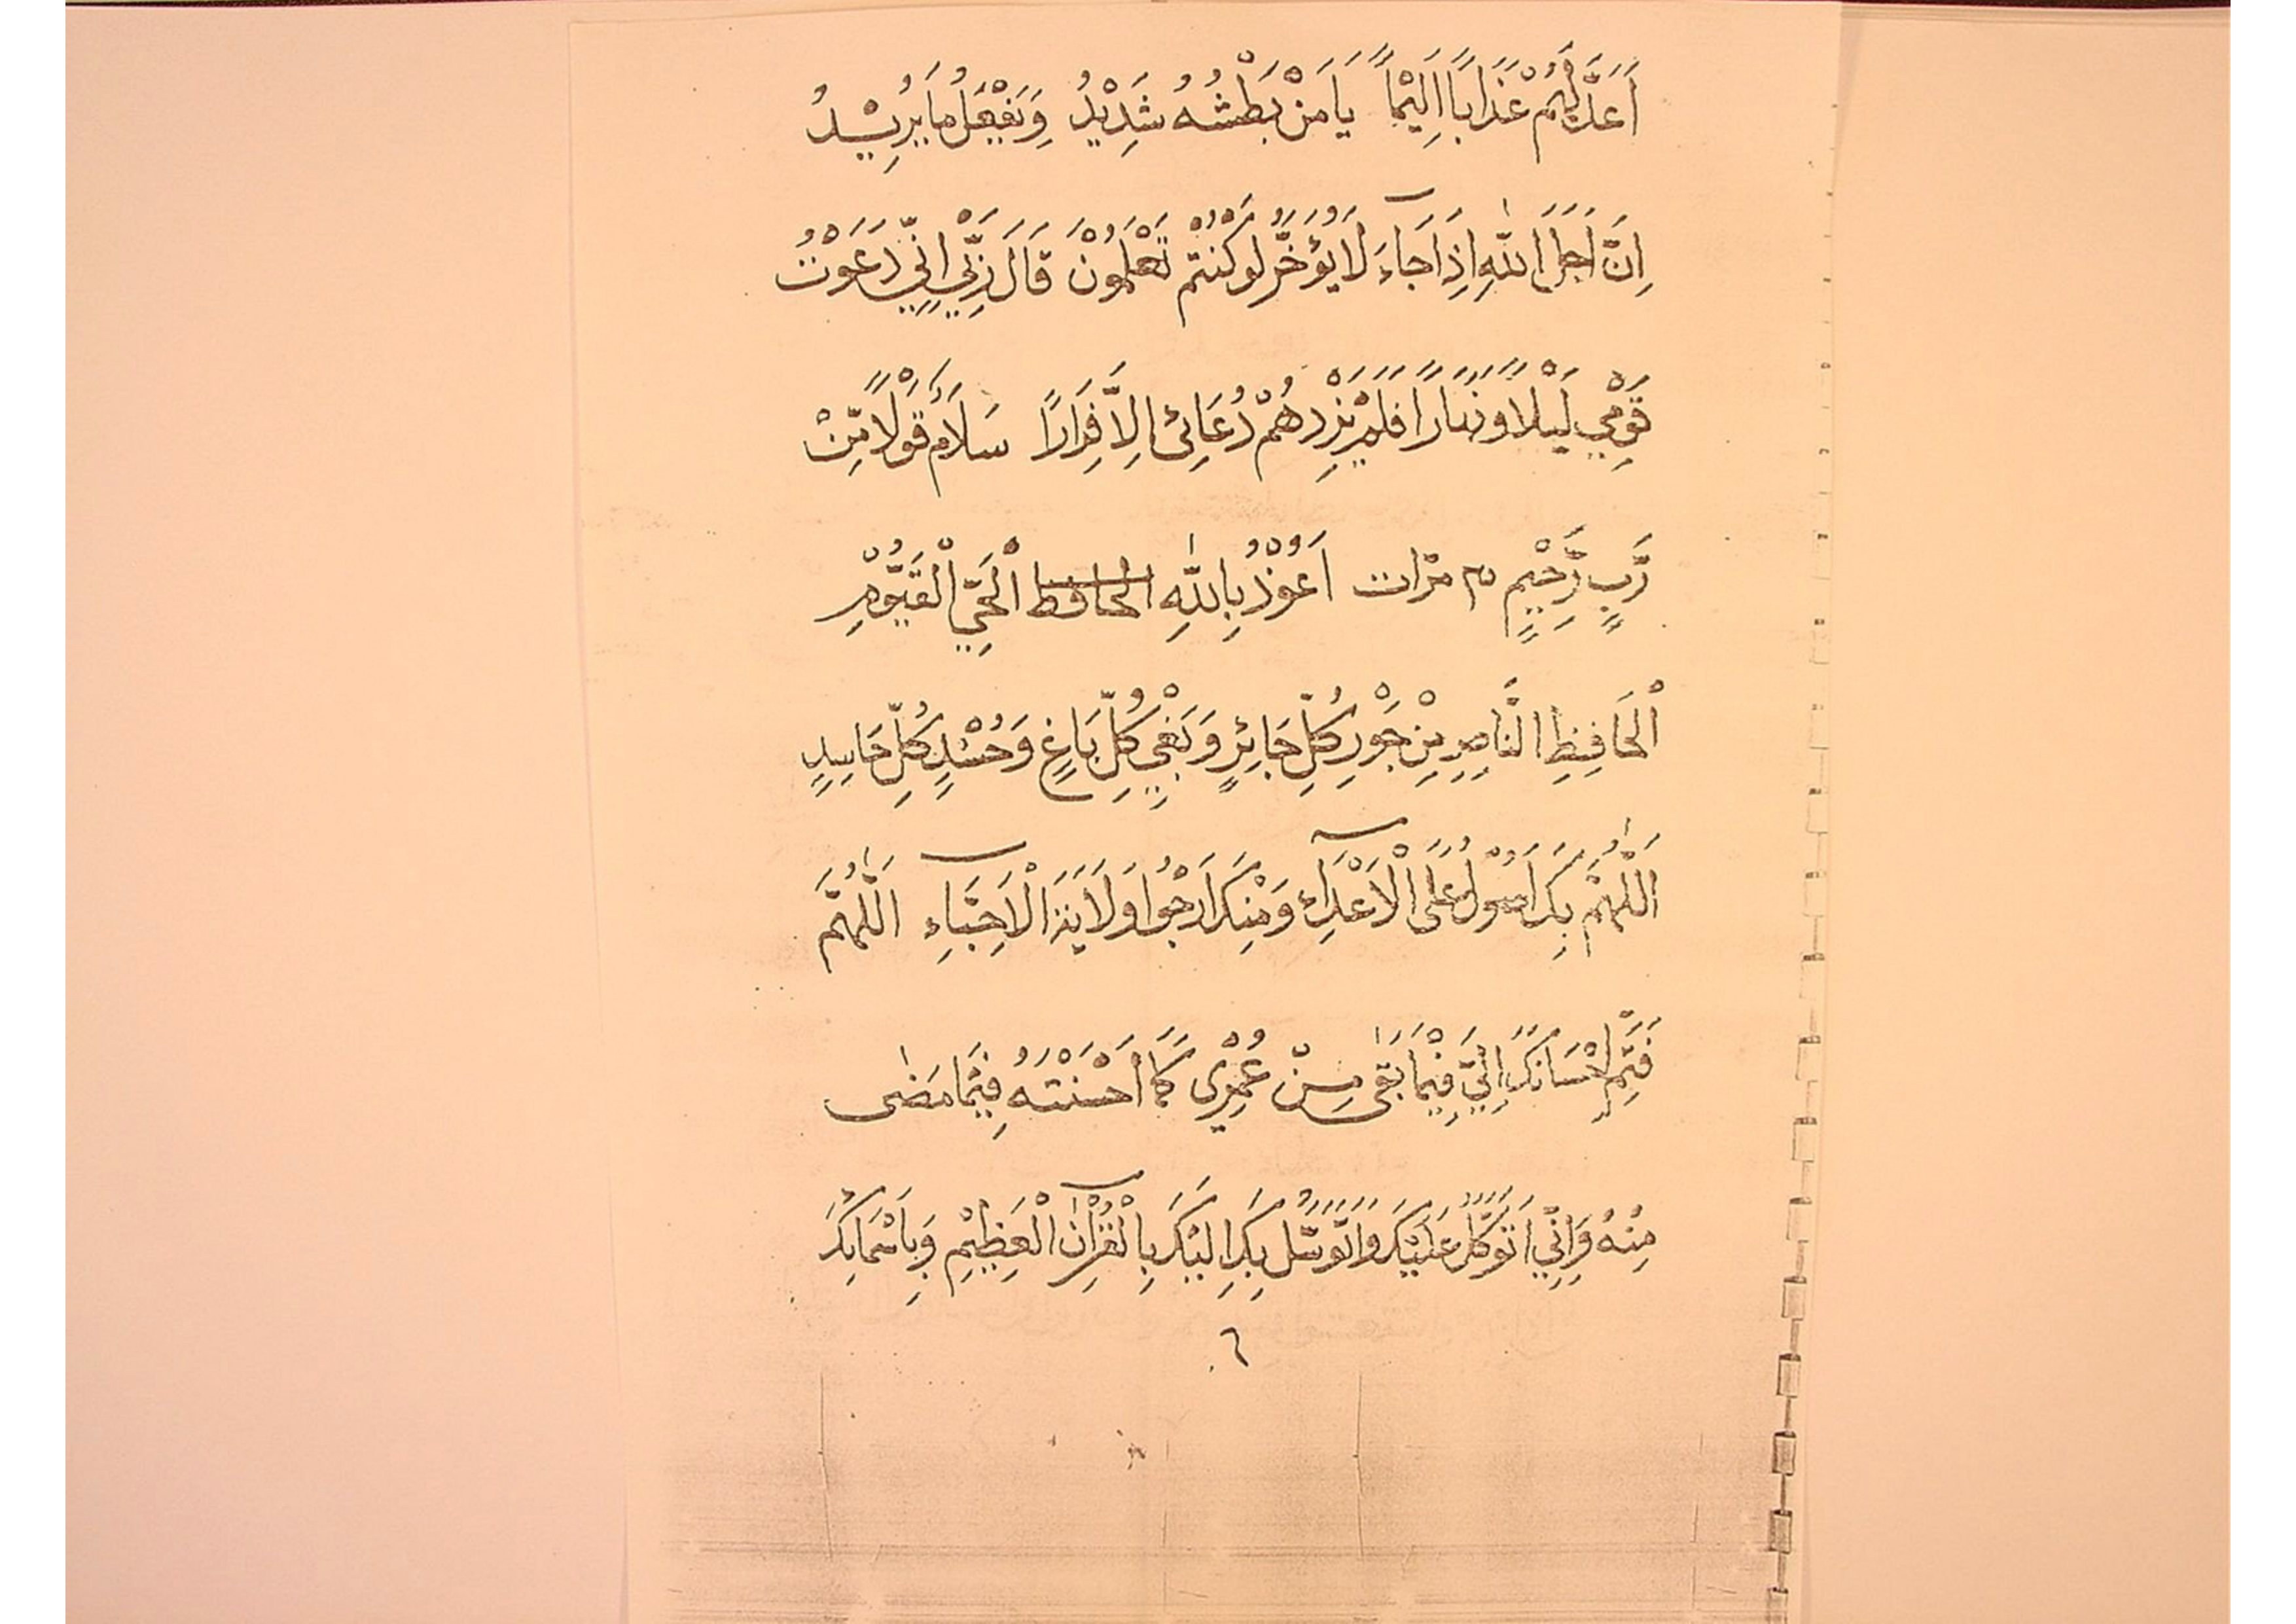 اَعَدَّ لَهُمْ عَذَابًا اَلِيْمًا يَا مَنْ بَطْشُهُ شَدِيْدُ وَيَفْعَلُ مَا يُرِيْدُ
اِنَّ اَجَلَ اللهِ اِذَا جَاءَ لَا يُؤَخَّرُ لَوْ كُنْتُمْ تَعْلَمُوْنَ قَالَ رَبِّيْ اِنِّيْ دَعَوْتُ
قَوْمِيْ لَيْلًا وَّنَهَارًا فَلَمْ يَزِدْهُمْ دُعَائِىْ اِلَّا فِرَارًا سَلَامٌ قَوْلًا مِّنْ
رَّبٍّ رَّحِيْمٍ ٣ مرّات اَعُوْذُ بِاللهِ الحافظ الْحَيِّ الْقَيُّوْمِ
الْحَافِظِ النَّاصِرِ مِنْ جَوْرِ كُلِّ جَائِرٍ وَبَغْيِ كُلِّ بَاغٍ وَحُسْدِ كُلِّ حَاسِدٍ
اَللّٰهُمَّ بِكَ اَصُوْلُ عَلَى الْاَعْدَاءِ وَمِنْكَ اَرْجُوا وَلَايَةَ الْاَحِبَّاءِ اَللّٰهُمَّ
فَتِمِّ اِحْسَانَكَ اِلَيَّ فِيْمَا بَقٰى مِنْ عُمْرِىْ كَمَا اَحْسَنْتَهُ فِيْمَا مَضٰى
مِنْهُ وَاِنِّيْ اَتَوَكَّلُ عَلَيْكَ وَاَتَوَسَّلُ بِكَ اِلَيْكَ بِالْقُرْآنِ الْعَظِيْمِ وَبِاَسْمَائِكَ
٦